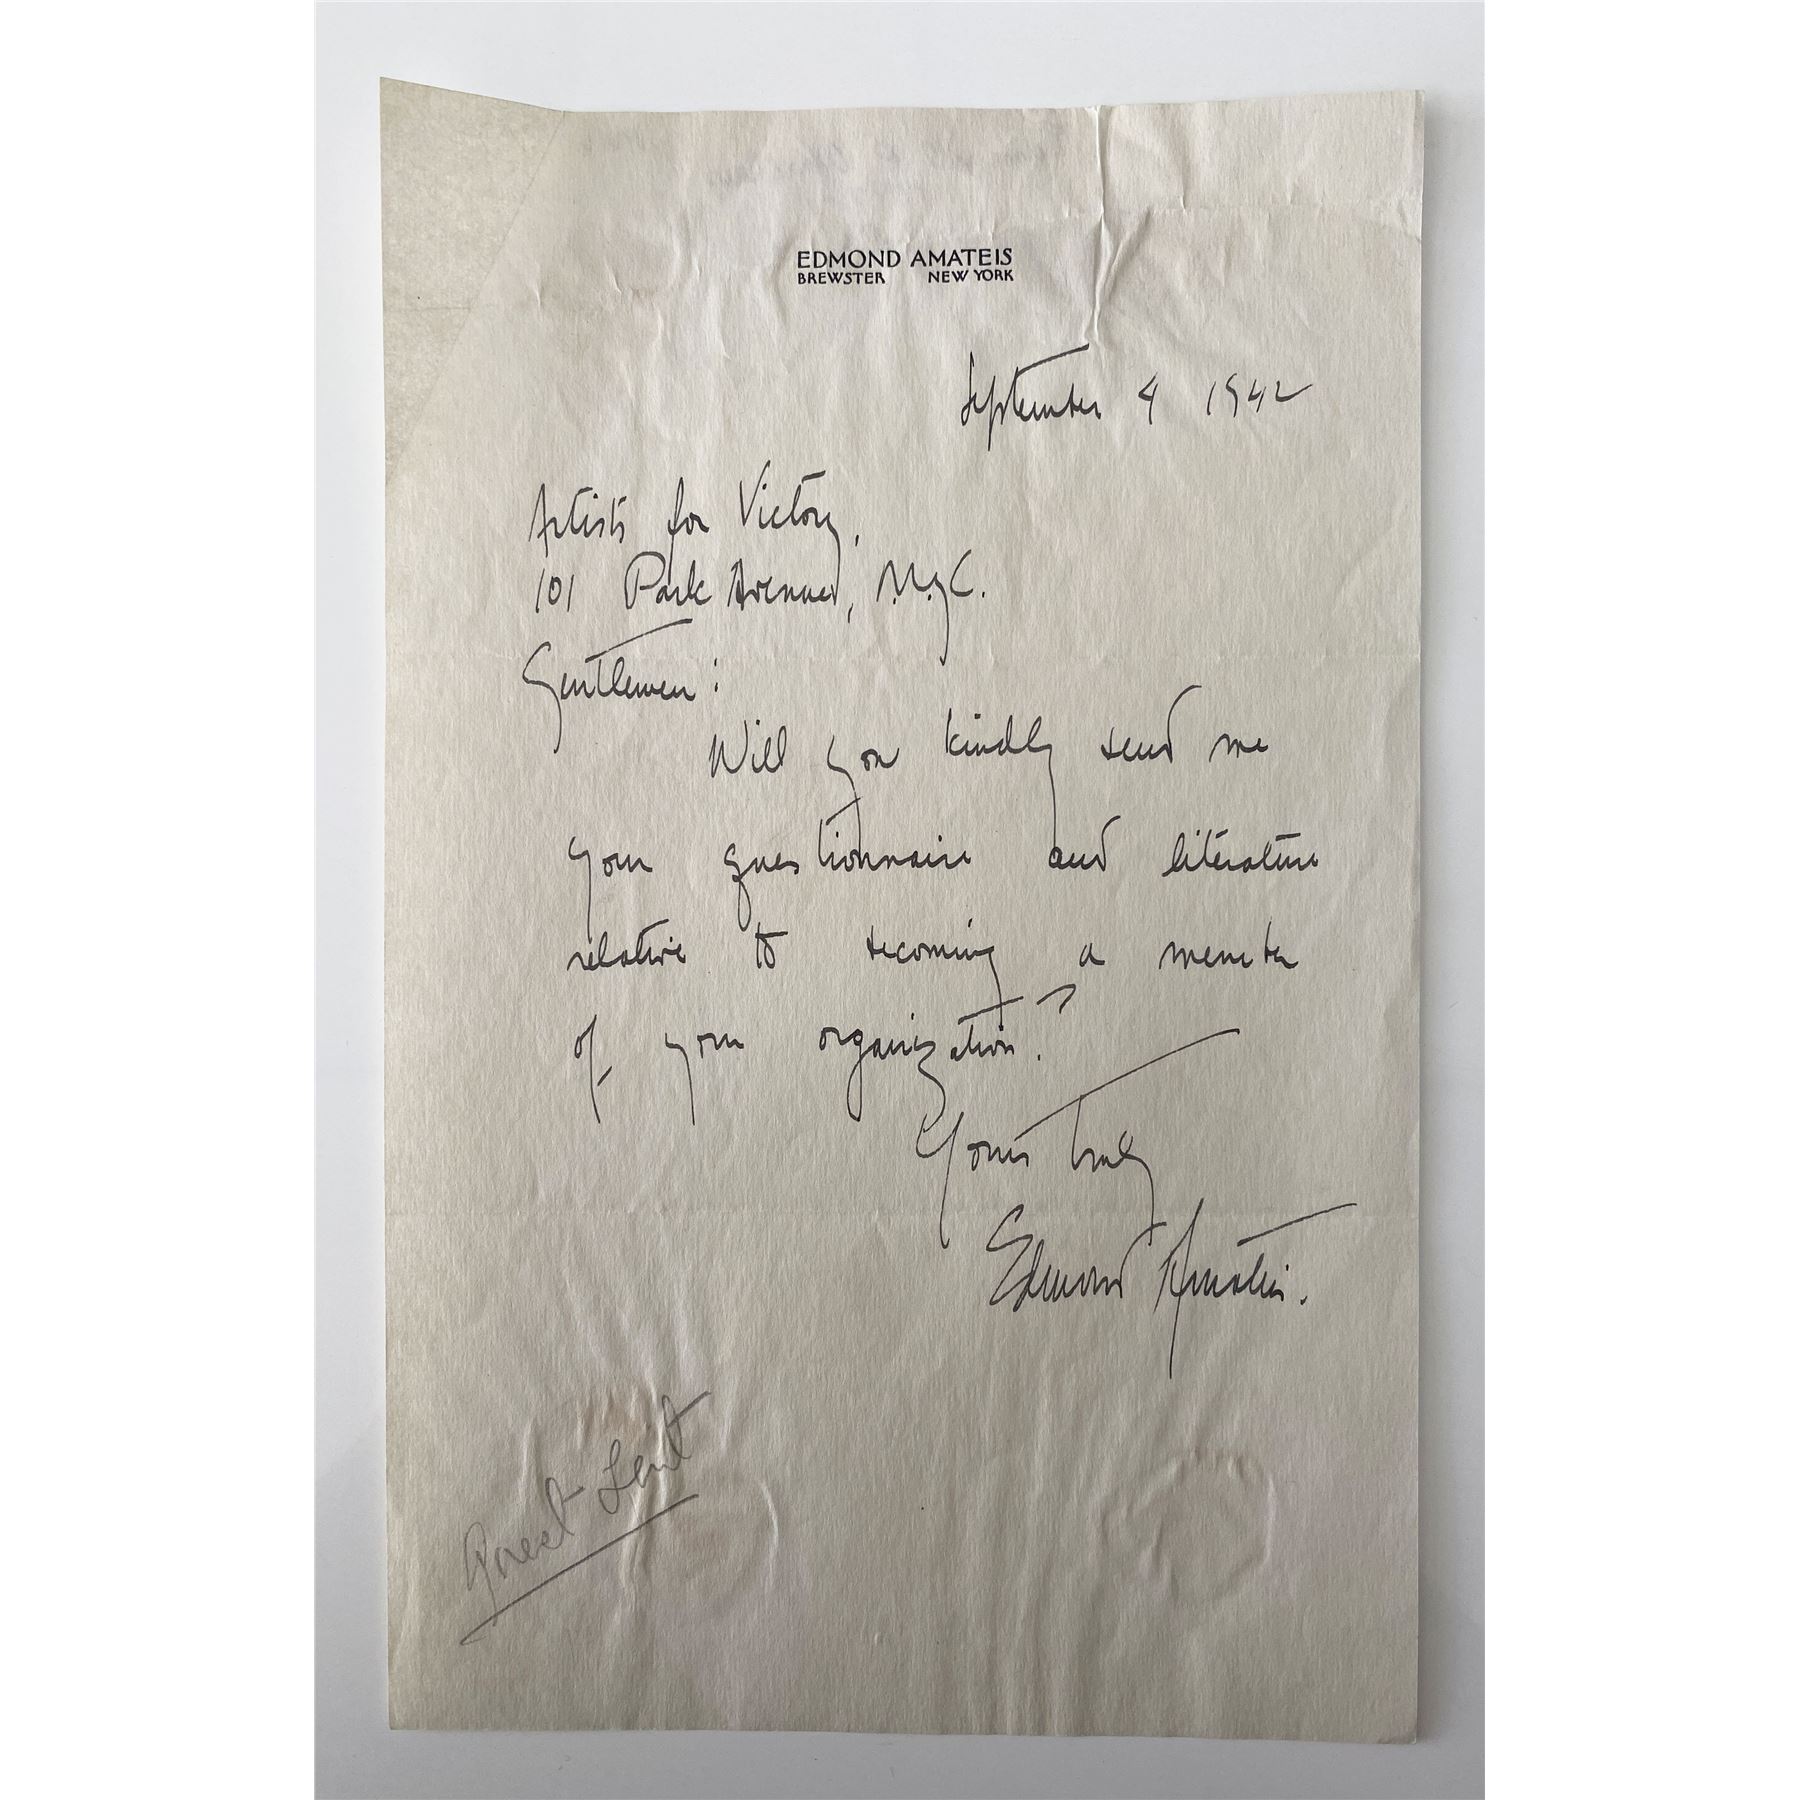 EDMOND AMATEIS
BREWSTER NEW YORK
September 4 1942
Artists for Victory,
101 Park Avenue, N.Y.C.
Gentlemen:
Will you kindly send me
your questionnaire and literature
relative to becoming a member
of your organization?
Yours truly
Edmond Amateis.
Sent